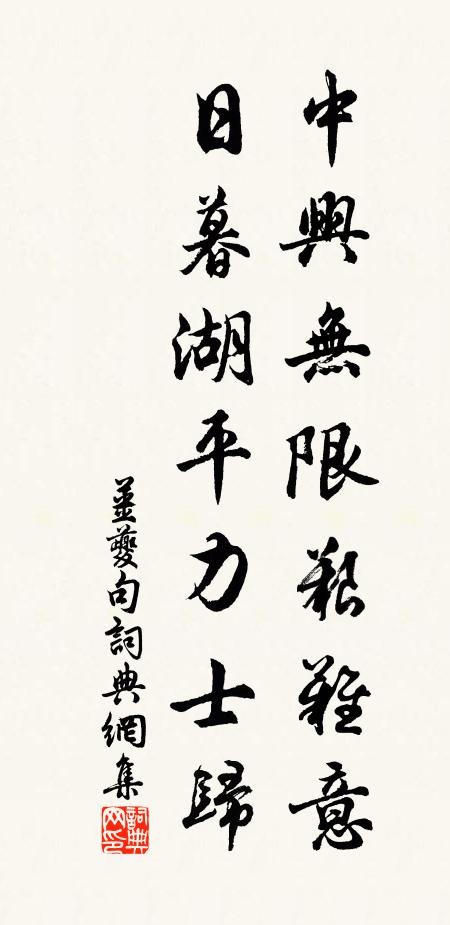 中興無限艱難意
日暮湖平力士歸
薑夔句詞典網集
詞典
网印